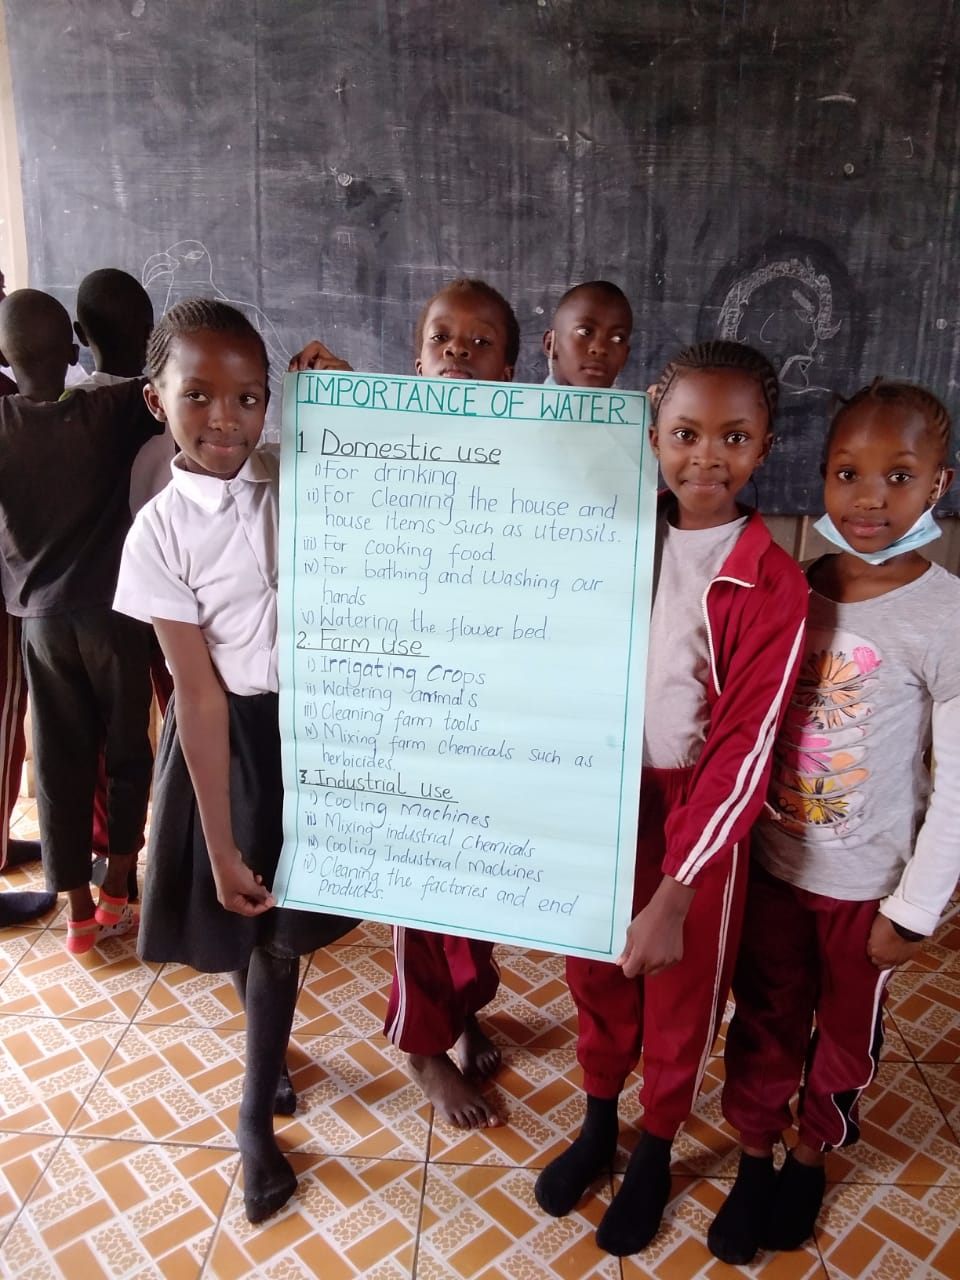 IMPORTANCE OF WATER.
1 Domestic use
i) For drinking
ii) For Cleaning the house and
house items such as utensils.
iii) For cooking food.
iv) For bathing and Washing our
hands
v) Watering the flower bed.
2. Farm use
i) Irrigating Crops
ii) Watering animals
iii) Cleaning farm tools
iv) Mixing farm chemicals such as
herbicides.
3. Industrial use
i) Cooling Machines
ii) Mixing industrial Chemicals
iii) Cooling Industrial Machines
iv) Cleaning the factories and end
products.